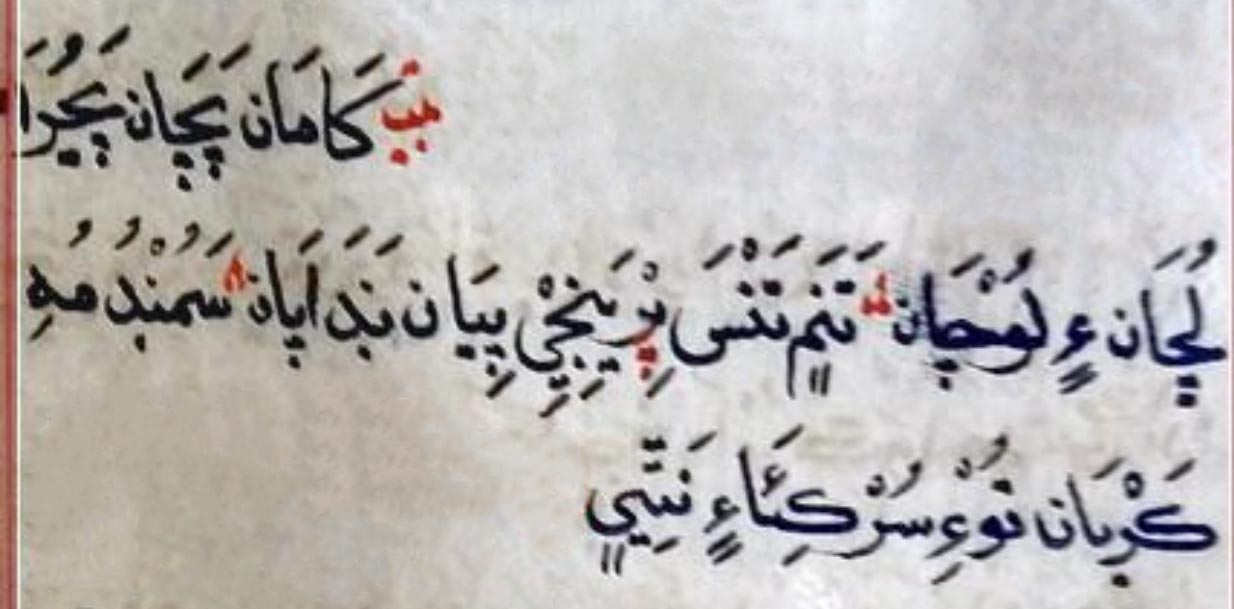 بيت كَامَان پَچَان پَچُرَا
لُچَان ءٍ لوُچَان تَنَمٍ تَنْسَ پِرْيَنِجِي پِيَان نَدَ اَپَان سَمُنْدُ مُهِ
كَرْيَان توُءِ سُرْكِئَاءٍ نَتِّيٍ